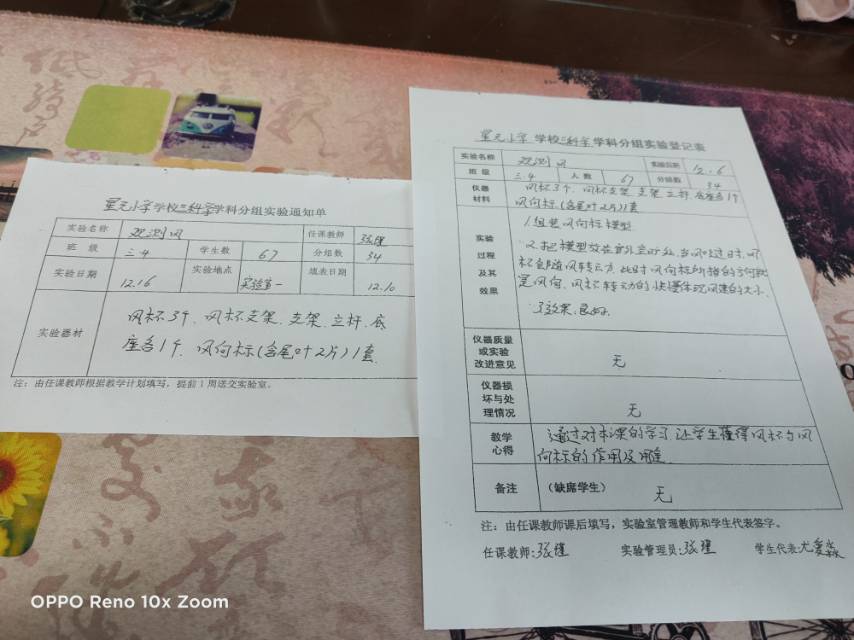 星元小学学校三科学学科分组实验通知单
实验名称 观测风 任课教师 张瑾
班 级 三.4 学生数 67 分组数 34
实验日期 12.16 实验地点 实验室一 填表日期 12.10
实验器材
风杯3个、风杯支架、支架、立杆、底
座各1个、风向标(含尾叶2片)1套
注：由任课教师根据教学计划填写，提前1周送交实验室。
星元小学学校三科学学科分组实验登记表
实验名称 观测风 实验日期 12.6
班 级 三.4 人 数 67 分组数 34
仪器
材料
风杯3个、风杯支架、支架、立杆、底座各1个
风向标(含尾叶2片)1套
实验
过程
及其
效果
1.组装风向标模型
2.把模型放在室外空旷处,当风吹过时,风
杯会随风转动,此时风向标所指的方向就
是风向,风杯转动的快慢体现风速的大小.
3.效果:良好.
仪器质量
或实验
改进意见
无
仪器损
坏与处
理情况
无
教学
心得
通过对本课的学习,让学生懂得风杯与风
向标的作用及用途
备注
(缺席学生) 无
注：由任课教师课后填写，实验室管理教师和学生代表签字。
任课教师:张瑾 实验管理员:张瑾 学生代表:尤
OPPO Reno 10x Zoom